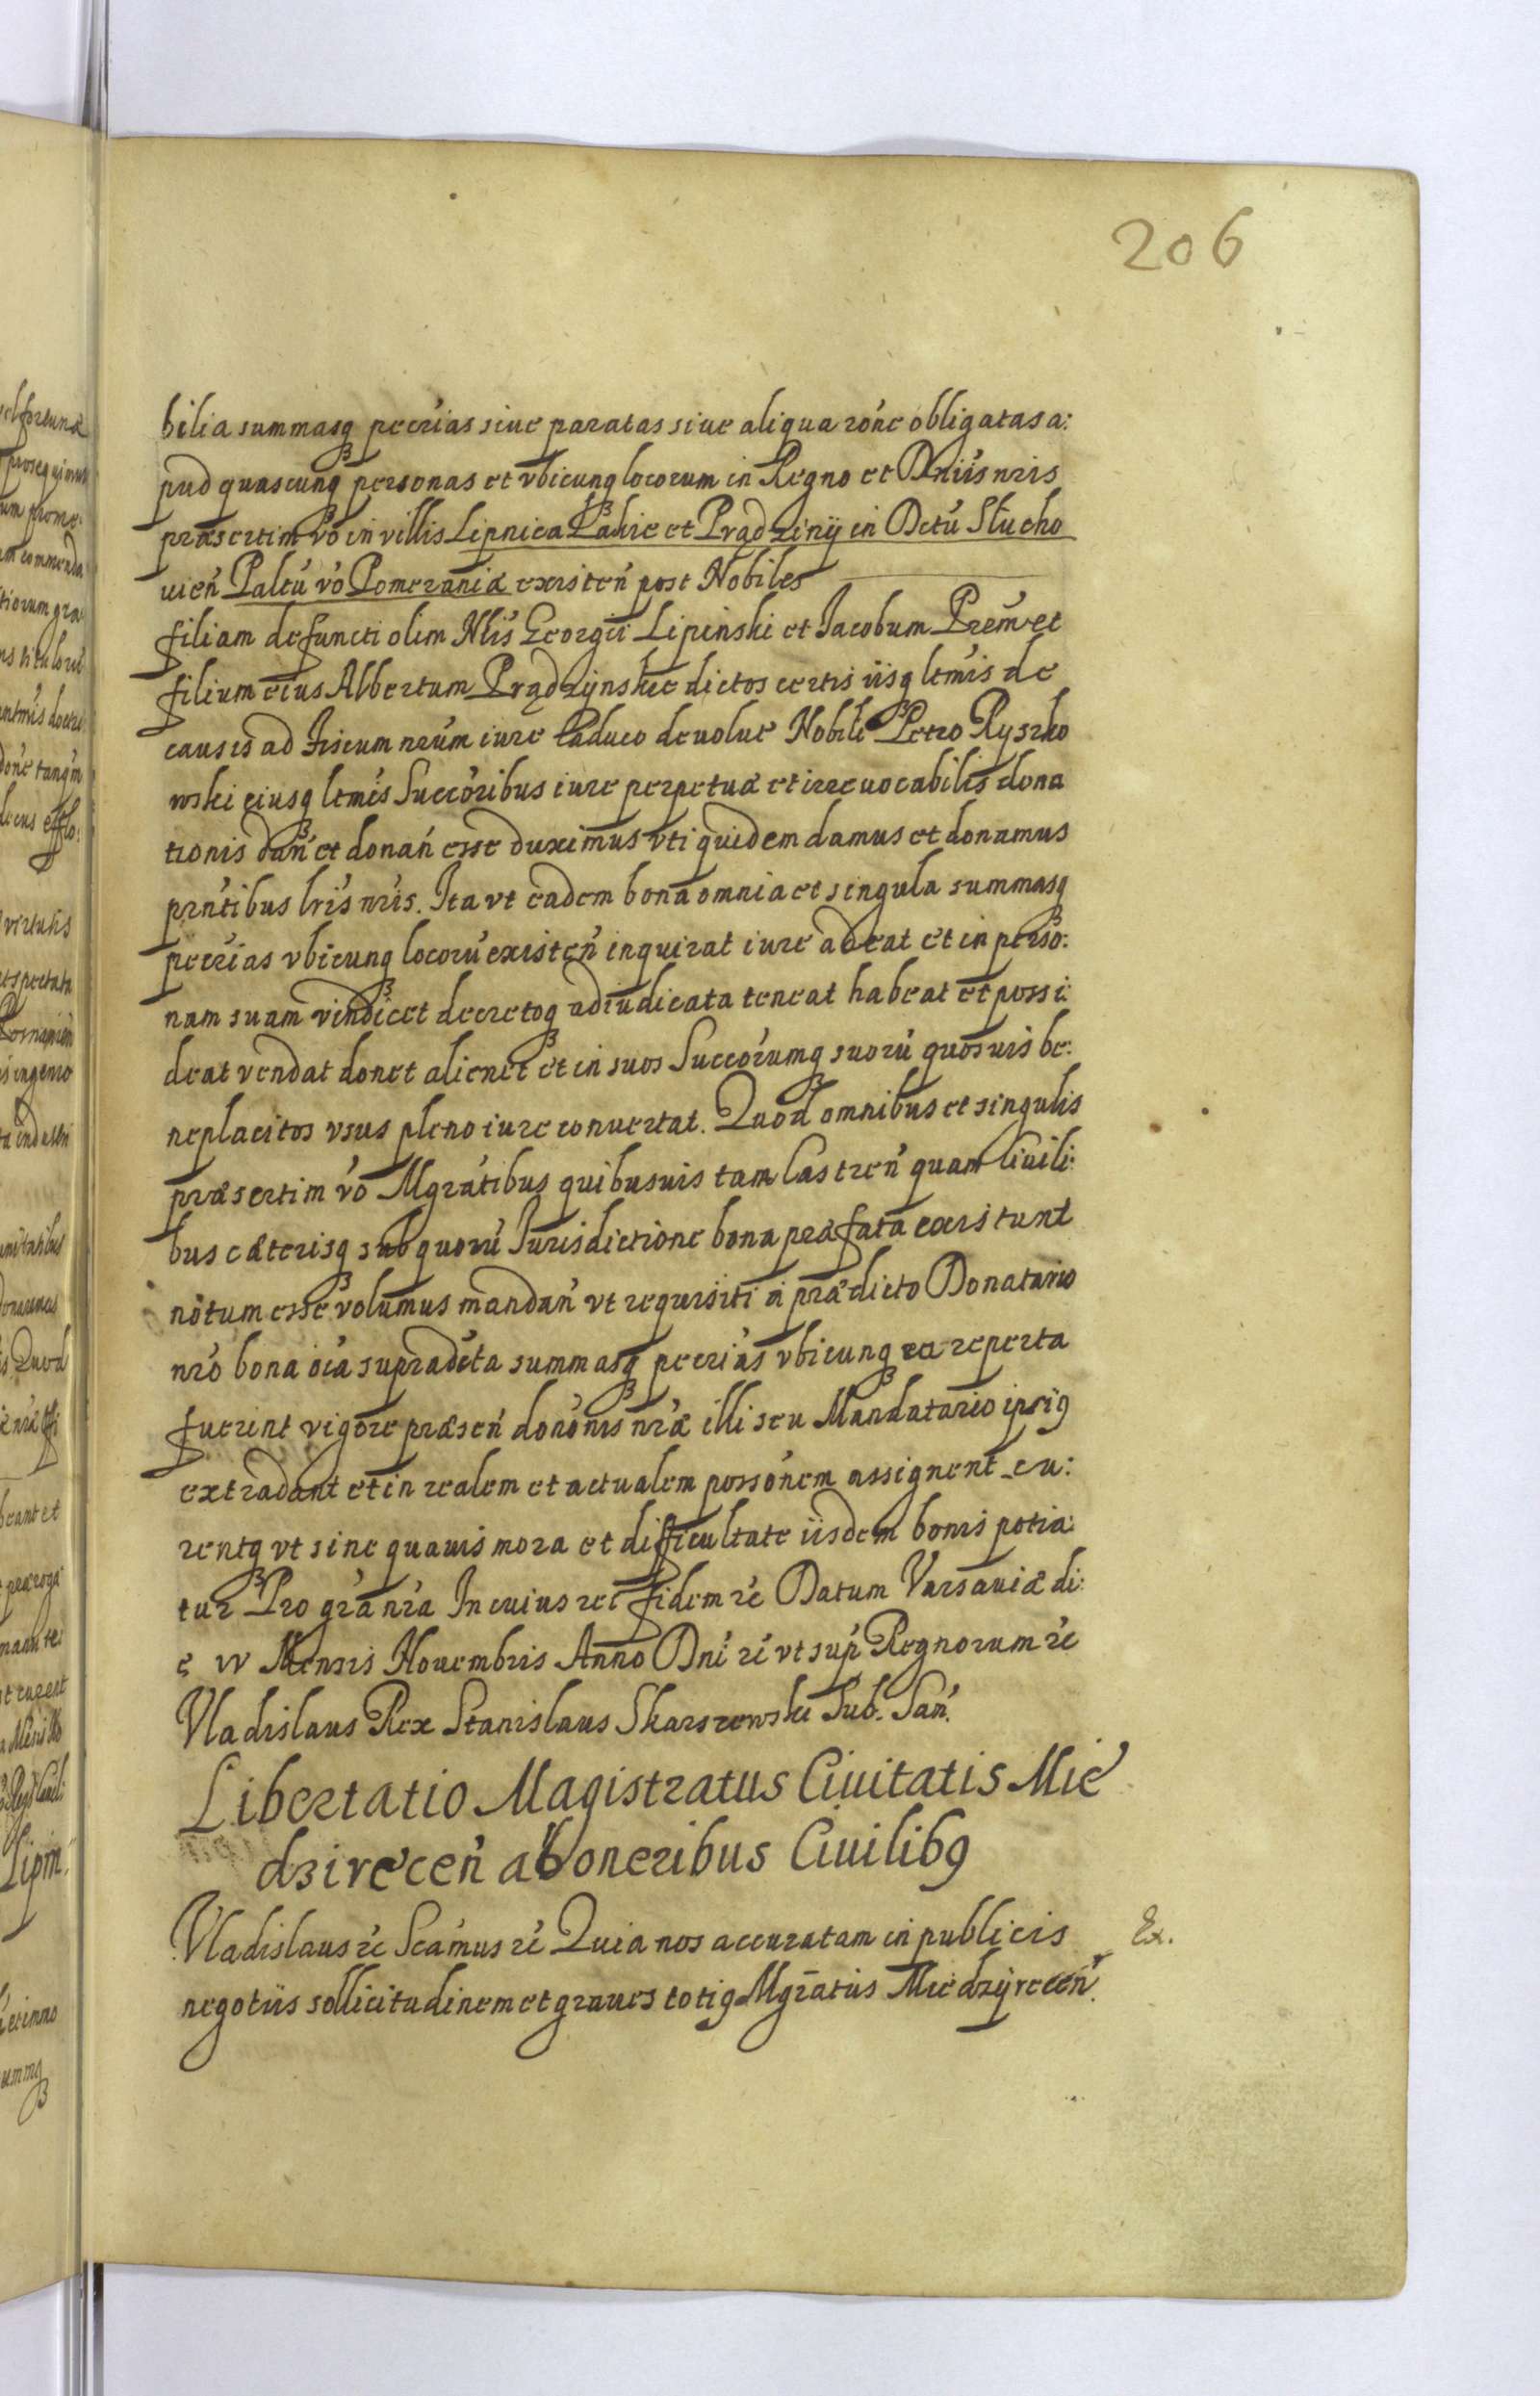 206
bilia summasq₃ pecũias siue paratas siue aliqua rōne obligatas a:
pud quascunq₃ personas et vbicunq₃ locorum in Regno et Dñiis nris
præsertim vō in villis Lipnica Łąkie et Prądziny in Dctũ Słucho
uień Paltũ vō Pomeraniæ existeń post Nobiles
filiam defuncti olim Nlis Georgii Lipinski et Jacobum Prem et
filium eius Albertum Prądzynskie dictos certis iisq₃ ltmis de
causis ad Fiscum nrum iure caduco deuolut Nobili Petro Ryszko
wski eiusq₃ ltmis Succoribus iure perpetuæ et irreuocabilis dona
tionis dań et donań esse duximus vti quidem damus et donamus
pntibus lris nris. Ita vt eadem bona omnia et singula summasq₃
pecrias vbicunq₃ locorũ existeń inquirat iure adeat et in perso:
nam suam vindicet decretoq₃ adiudicata teneat habeat et possi:
deat vendat donet alienet et in suos Succorumq₃ suorũ quosuis be:
neplacitos vsus pleno iure conuertat. Quod omnibus et singulis
præsertim vō Mgratibus quibusuis tam Castreń quam Ciuili:
bus cæterisq₃ sub quorũ Jurisdictione bona præfata existunt
notum esse volumus mandań vt requisiti a prædicto Donatario
nro bona oia supradcta summasq₃ pecrias vbicunq₃ ea reperta
fuerint vigore præseń dononis nræ illi seu Mandatario ipsi9
extradant et in realem et actualem possonem assignent cu:
rentq₃ vt sine quauis mora et difficultate iisdem bonis potia:
tur Pro gra nra In cuius rei fidem rc Datum Varsauiæ di:
e IV Mensis Nouembris Anno Dni rc vt sup Regnorum rc
Vladislaus Rex Stanislaus Skarszewski Sub. San.
Libertatio Magistratus Ciuitatis Mié
dziréceń ab oneribus Ciuilib9
Vladislaus rc Scamus rc Quia nos accuratam in publicis
Ex.
negotiis sollicitudinem et graues toti9 Mgratus Miedzyreceń.